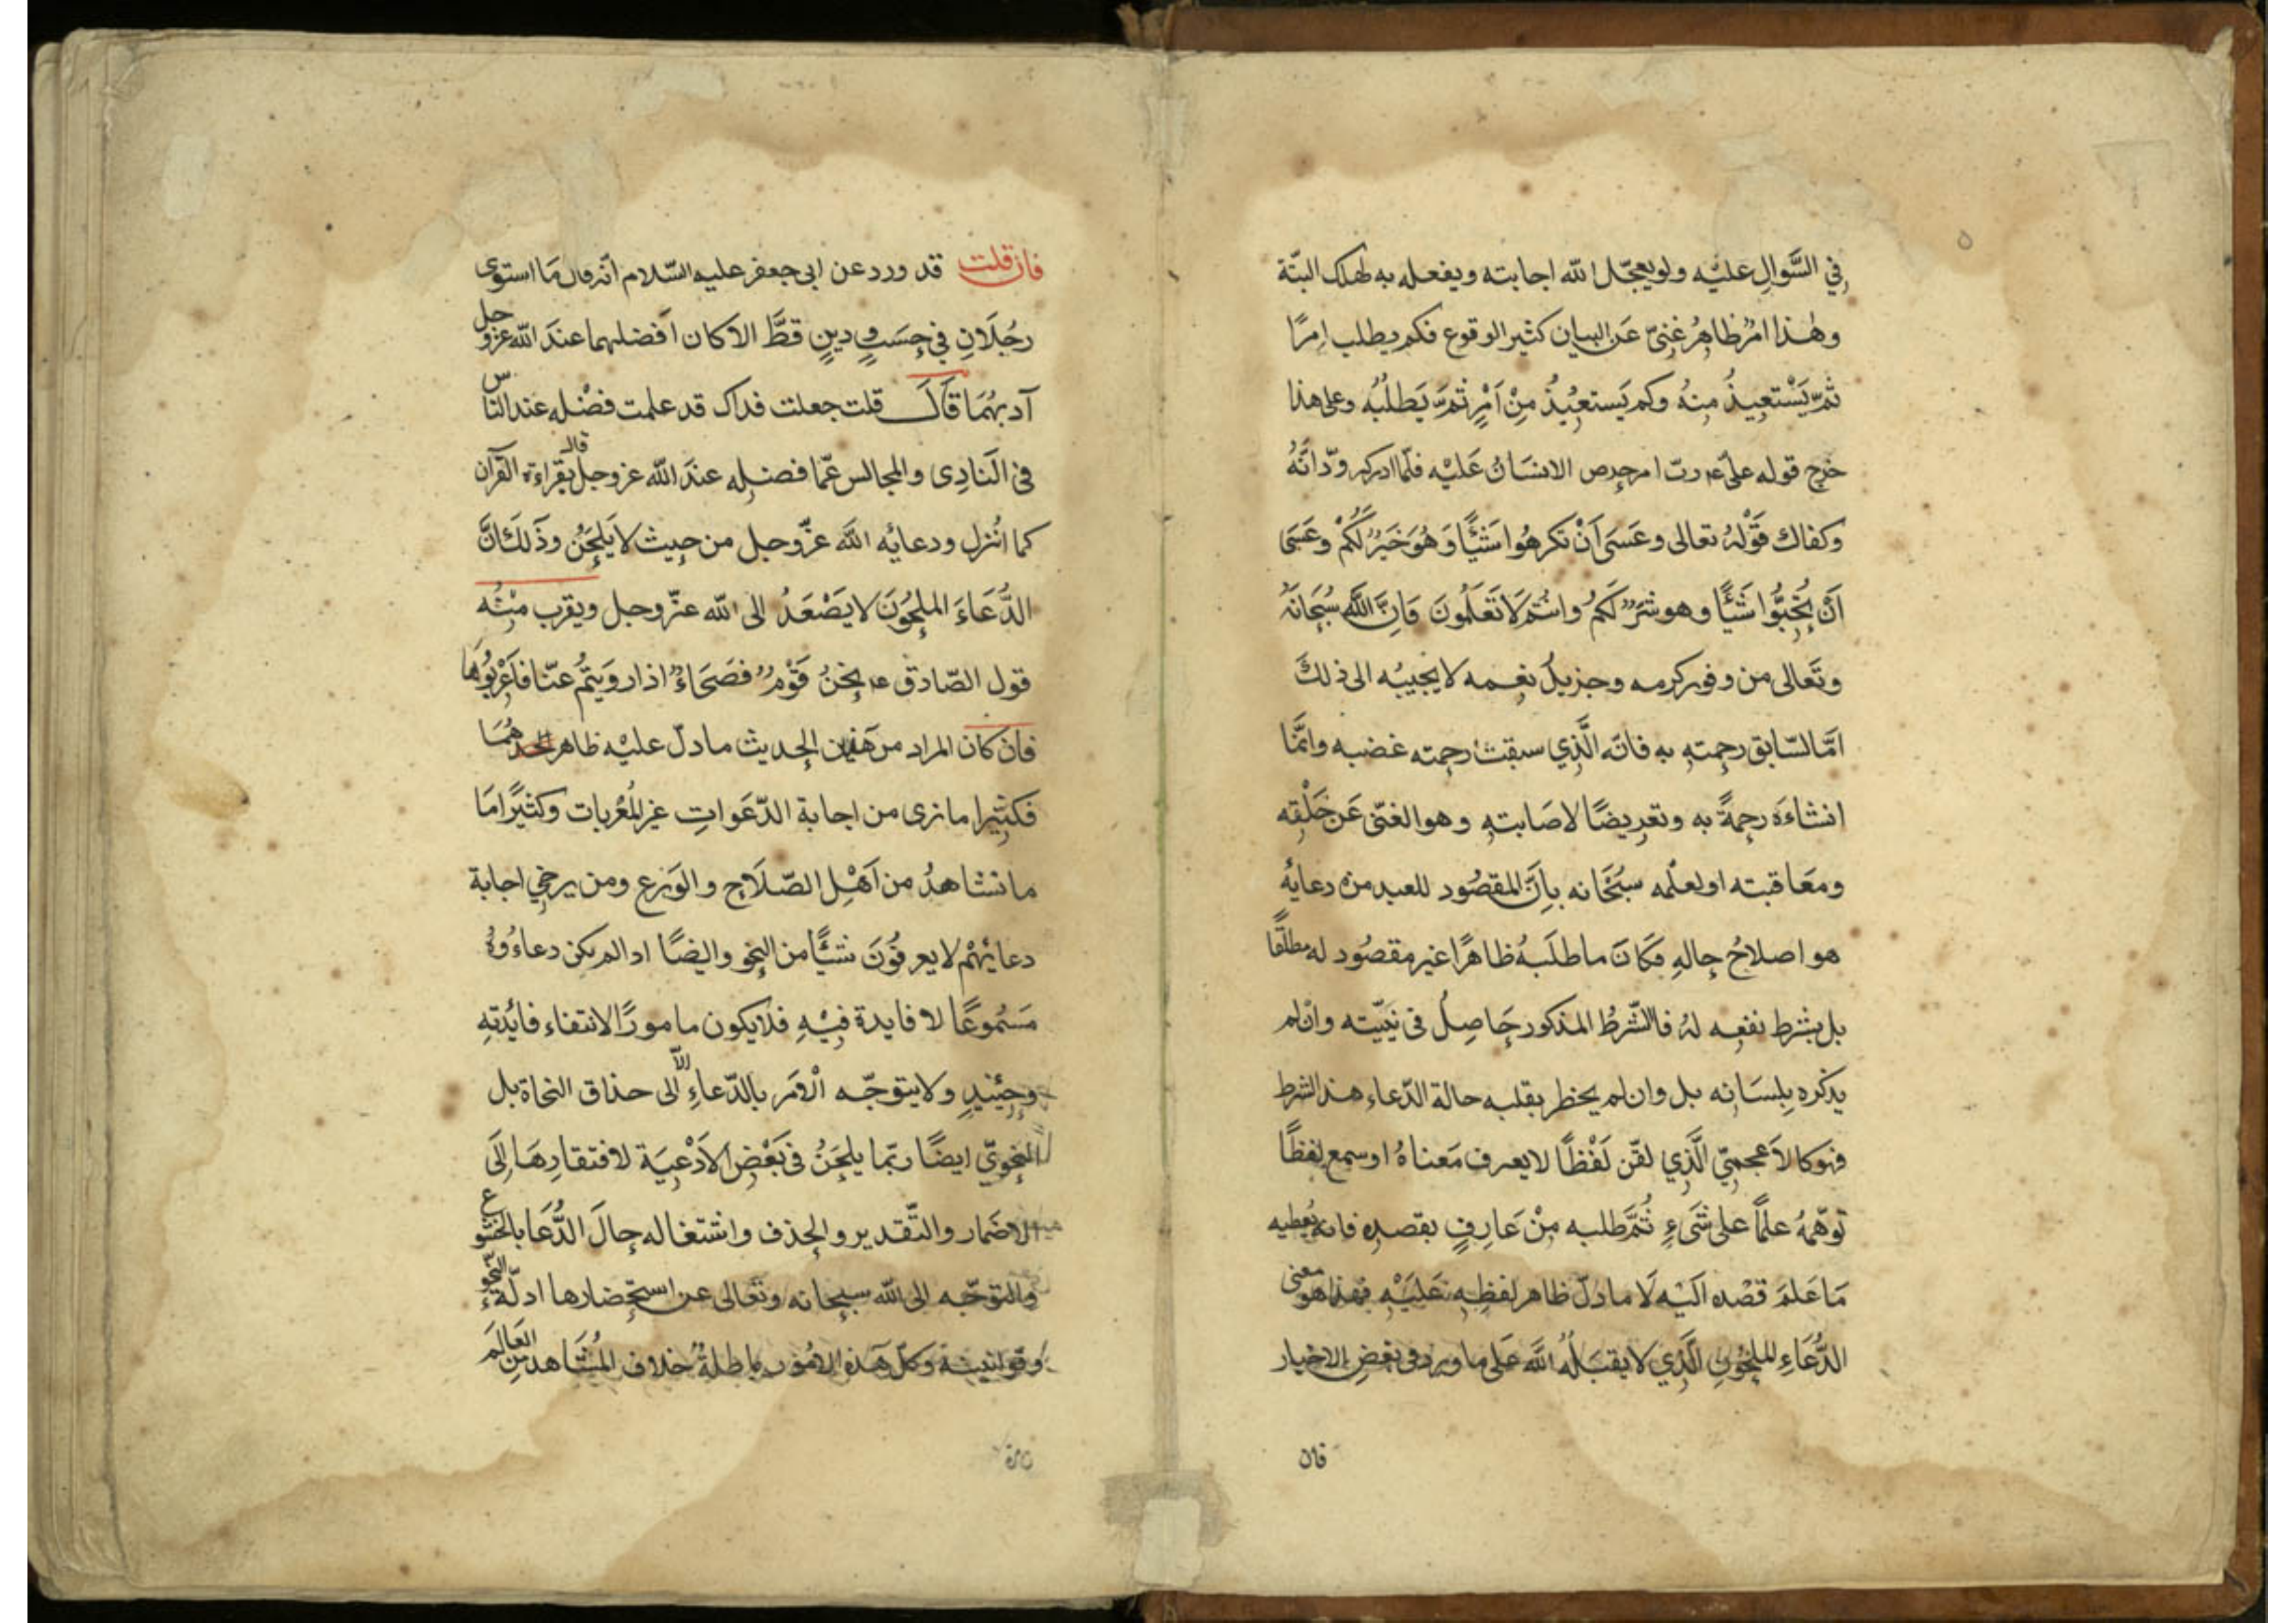 ٥
في السَّوالِ عليْه ولو يعجّل الله اجابته ويفعله به لهلك البتّة
وهٰذا امرٌ ظاهِرٌ غنيّ عَن البيان كثير الوقوع فكم يطلب امرًا
ثمّ يَسْتَعِيذُ مِنهُ وكم يَستعِيْذُ مِنْ اَمْرٍ ثمّ يَطلُبُه وعلى هذا
خرج قوله على عه ربّ امر حرص الانسَانُ عَليْه فلمّا ادركه ودّ انّهُ
وكفاك قَوْلهُ تعالى وعَسَى اَنْ تكرهُوا شَيْئًا وَهُوَ خَيْرٌ لكُمْ وعَسَى
اَنْ تُحِبُّوا شَيْئًا وهو شَرٌّ لكُمْ وانتُم لَا تَعلَمُونَ فَاِنَّ اللّٰهَ سُبحَانَهُ
وتَعالى من وفور كرمه وجزيل نعمه لا يجيبُه الى ذلكَ
امّا لسّابق رحمتهِ به فانّه الَّذِي سبقت رحمته غضبه وانّما
انشاءَه رحمةً به وتعريضًا لاصَابتهِ وهو الغنيّ عَن خَلْقِه
ومعَاقبته او لعلْمه سبُحَانه باَنَّ المقصُود للعبد من دعائهٔ
هو اصلاحُ حالهِ فكانَ ما طلَبهُ ظاهرًا غير مقصُود له مطلقًا
بل بشرط نفعِه لهُ فالشّرطُ المذكور حَاصِلٌ فى نيّته وان لم
يذكره بلِسَانه بل وان لم يخطر بقلبه حالة الدّعاء هذا الشرط
فهو كالاَعجميّ الَّذِي لقّن لَفْظًا لا يعرف مَعناهُ او سمع لفظًا
توهّمهُ علمًا على شَيءٍ ثُمَّ طلبه مِنْ عَارِفٍ بقصدِه فانه يُعطيه
مَا عَلمَ قصْده اليْه لَا ما دلّ ظاهر لفظِه عَليْهِ فهذا هو معنى
الدُّعَاءِ الملحُونِ الَّذِي لا يقبَلُه اللَّه عَلى ما ورد في بَعْضِ الاخبار
فان
فان قلت قد ورد عن ابى جعفر عليه السّلام انّه قال مَا استوى
رجُلَانِ فِي حِسَبٍ ودينٍ قطَّ الا كان اَفضلهما عندَ الله عزّ وجل
آدبهُمَا قَالَ قلت جعلت فداك قد علمت فضْله عند الناس
فى النَادِى والمجالس عمّا فضلِه عندَ الله عز وجل قال بقراءة القرآن
كما اُنزل ودعائِه اللهَ عزّ وجل من حيث لا يَلحَنُ وذَلكَ اَنَّ
الدُّعَاءَ الملحُونَ لا يَصْعَدُ الى الله عزّ وجل ويقرب مِنْه
قول الصّادق عه نحْنُ قَوْمٌ فصَحَاءٌ اذا رويتُم عنّا فاَعْرِبُوهَا
فان كان المراد من هذين الحديث ما دلّ عليْه ظاهرهُمَا
فكثيرا ما نرى من اجابة الدّعَواتِ غير المُعْربات وكثيرًا مَا
ما نشاهدُ من اَهْلِ الصّلَاح والوَرَع ومن يرجى اجابة
دعائهُم لا يعرفُونَ شيئًا من النحو وايضًا اذا لم يكن دعاءُهُ
مَسْمُوعًا لا فايدة فيْهِ فلا يكون مامورًا لانتفاء فائدتهِ
وحِيْنئِذٍ ولا يتوجّه الْامَر بالدّعاءِ الّا الى حذاق النحاة بل
النحْويّ ايضًا ربّما يلحَنُ فى بَعْضِ الاَدْعِيَة لافتقارِهَا اِلَى
الاضمار والتّقدير والحذف واشتغاله حالَ الدُّعَا بالخشوع
والتوجّه الى الله سبحانه وتعالى عن استحضارها ادلّة النّحو
وقوانينه وكلّ هذه الامُور باطلةٌ خلاف المُشاهد من العَالَم